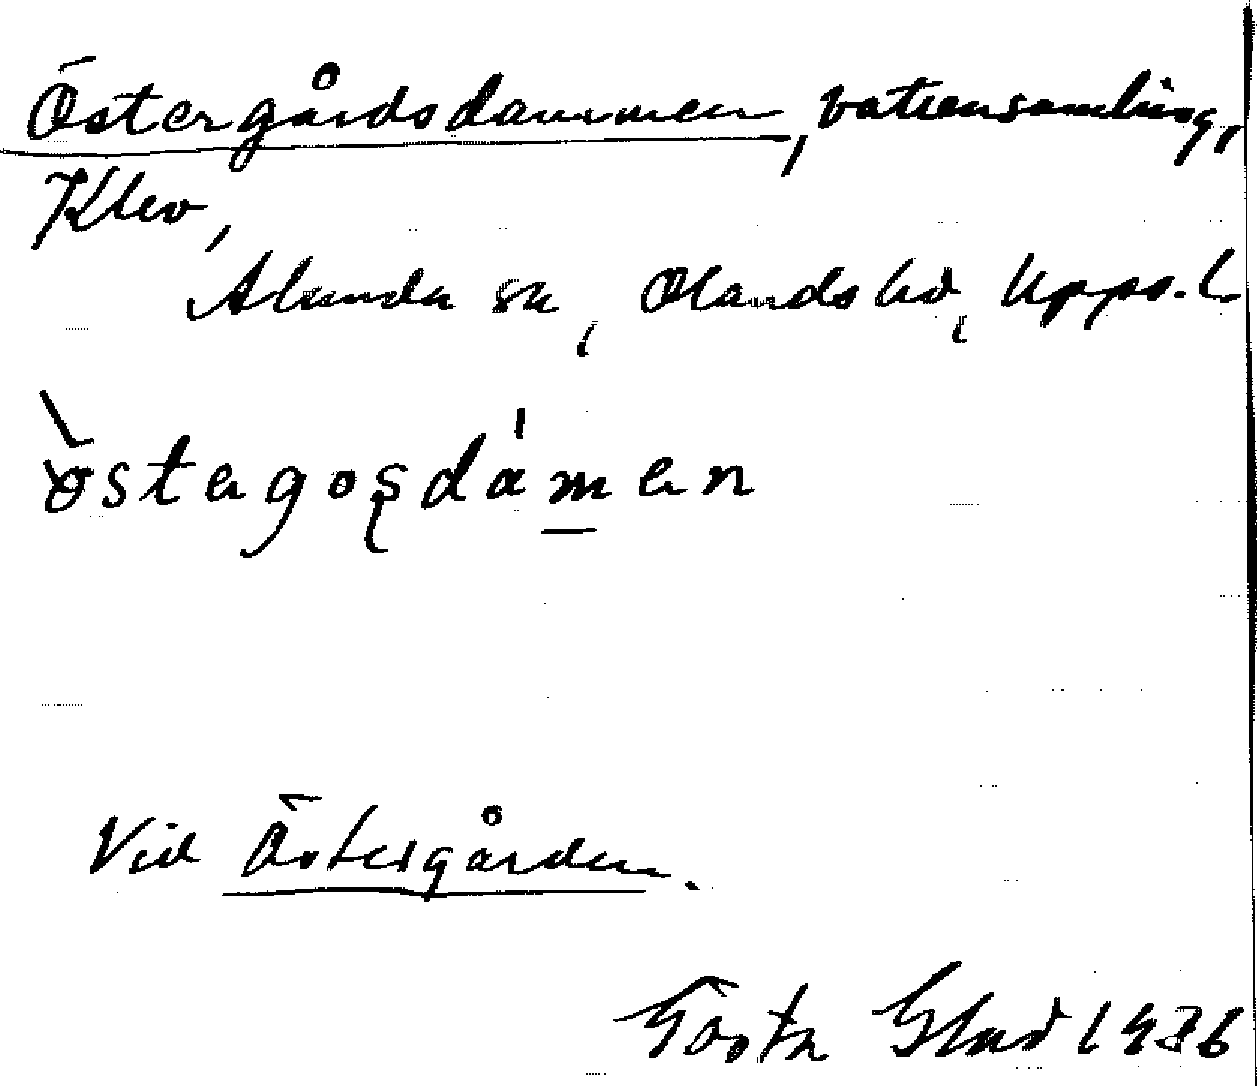 Östergårdsdammen, vattensamling,
Klev,
Alunda sn, Olands hd, Upps. l.
östagosdamen
Vid Östergården.
Gösta Glad 1936